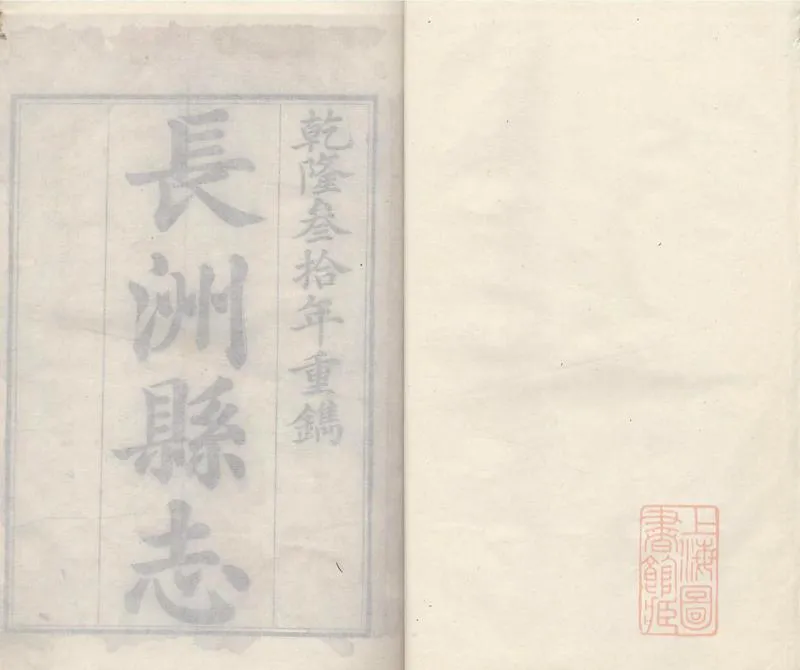 乾隆叄拾年重鐫
長洲縣志
上海圖
書館藏